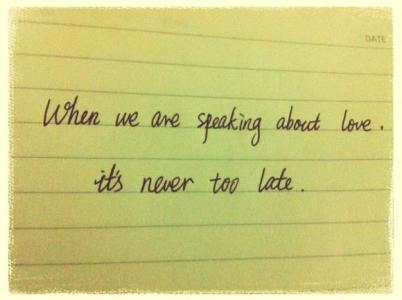 DATE
When we are speaking about love.
it's never too late.